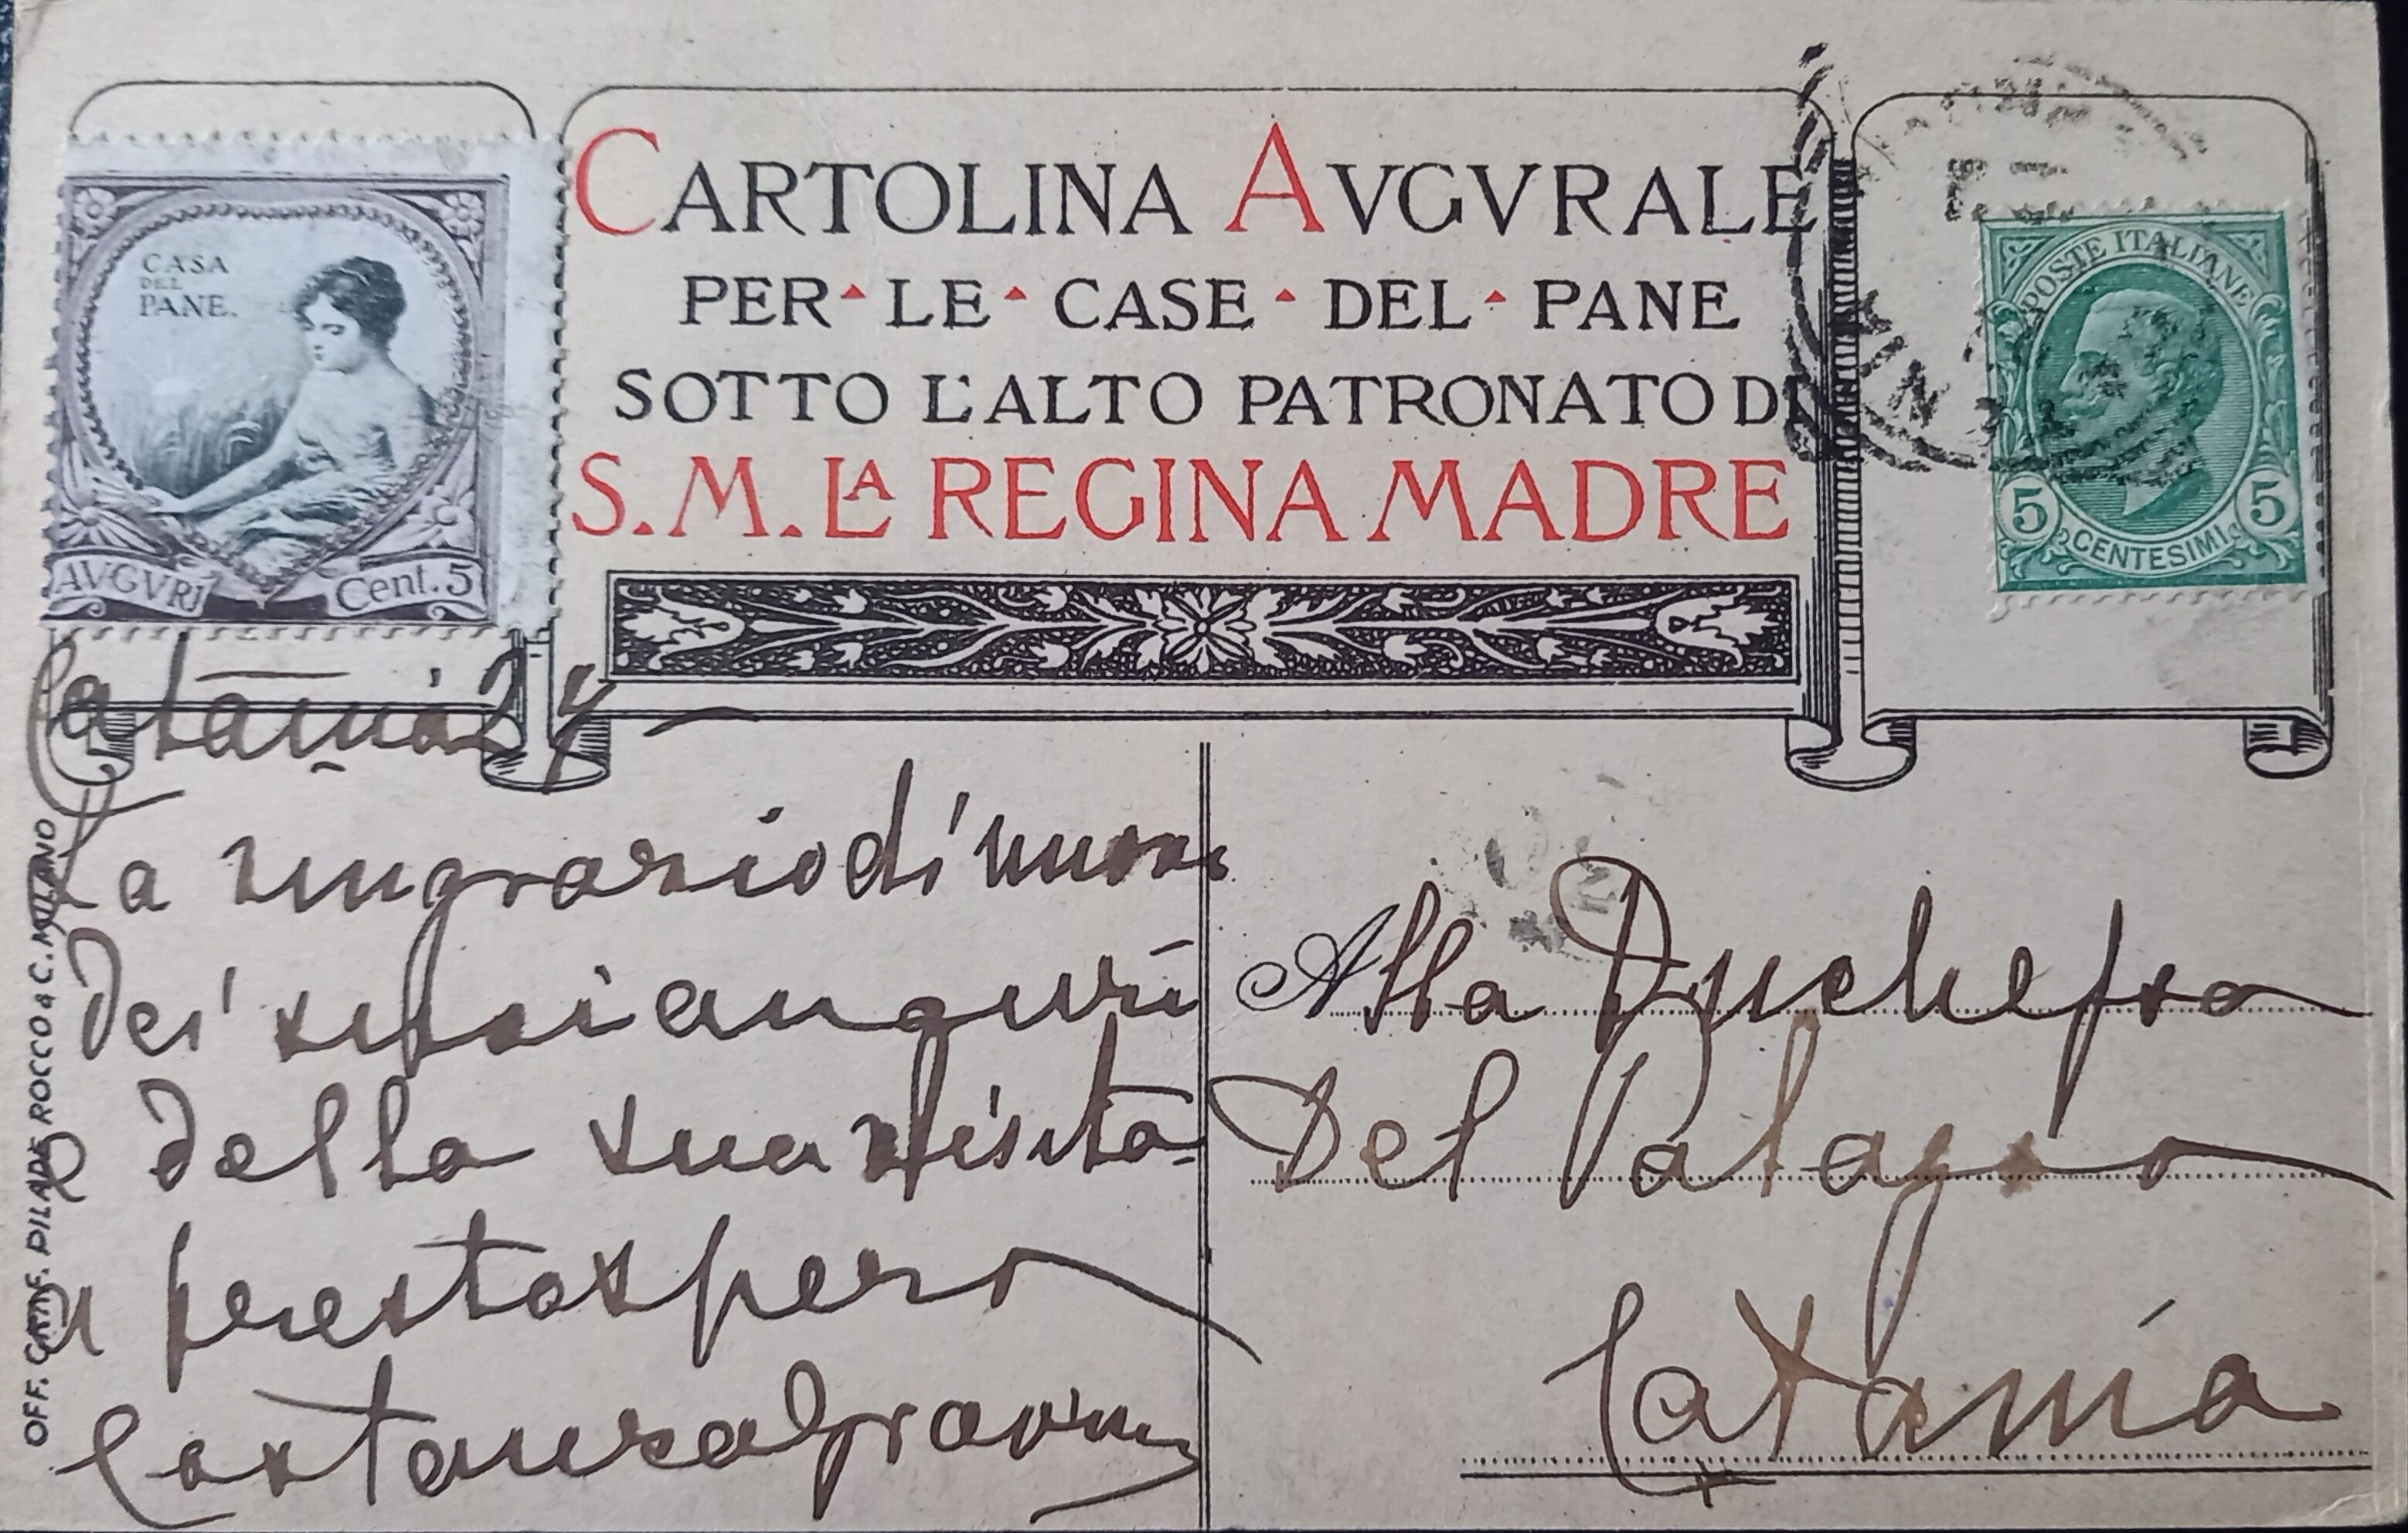 CASA
DEL
PANE.
AVGVRI Cent. 5
CARTOLINA AVGVRALE
PER · LE · CASE · DEL · PANE
SOTTO L'ALTO PATRONATO DI
S. M. LA REGINA MADRE
POSTE ITALIANE
5 CENTESIMI 5
Catania
La ringrazio di nuovo
dei suoi auguri
e della sua visita
a presto spero
Costanza
Alla Duchessa
Del Palazzo
Catania
OFF. GRAF. PILADE ROCCO & C. MILANO